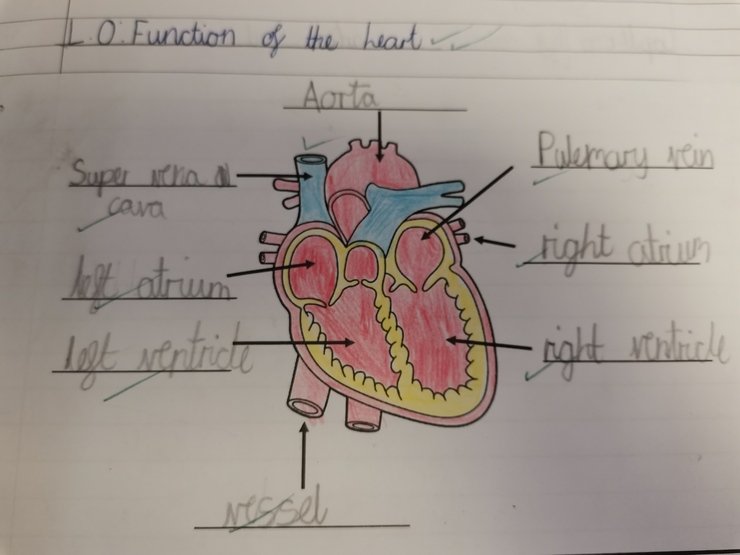 L.O. Function of the heart
Aorta
Super vena
cava
Pulemary vein
right atrium
left atrium
left ventricle
right ventricle
vessel